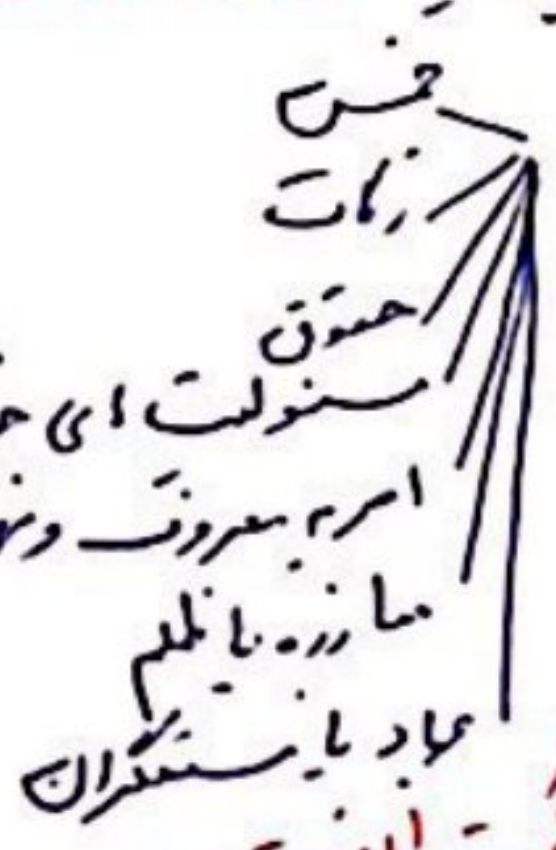 خمس
زکات
حقوق
مسئولیت های
امر به معروف و
مبارزه با ظلم
جهاد با ستمگران